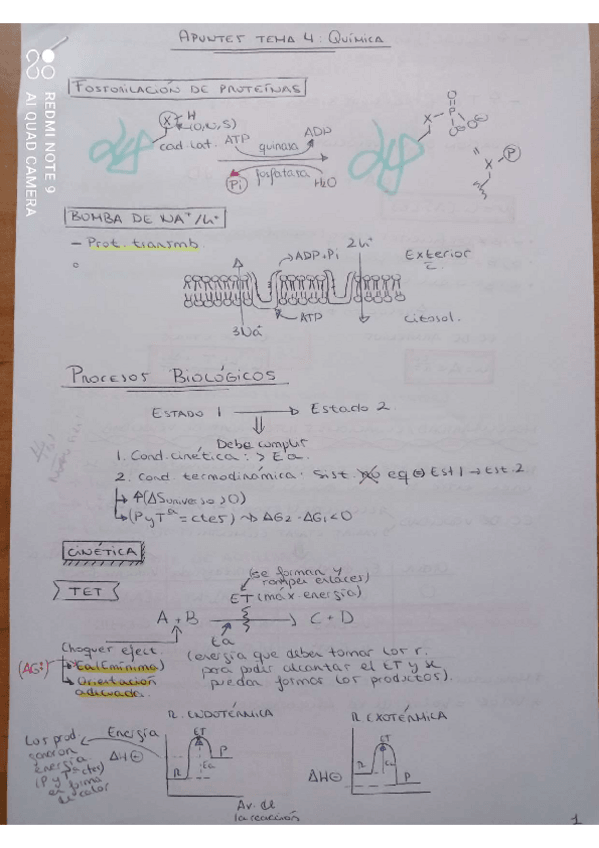 APUNTES TEMA 4: QUÍMICA
REDMI NOTE 9
AI QUAD CAMERA
FOSFORILACIÓN DE PROTEÍNAS
X H
(O,N,S)
cad. lat.
ATP
quinasa
ADP
Pi
fosfatasa
H2O
O
X - P - O
O
X - P
BOMBA DE NA+/K+
- Prot. transmb.
ADP+Pi
2K+
Exterior
C.
3Na+
ATP
citosol.
PROCESOS BIOLÓGICOS
ESTADO 1 → Estado 2
Debe cumplir
1. Cond. cinética: > Ea.
2. Cond. termodinámica: Sist. no eq Est 1 → Est. 2
(ΔSuniverso >0)
(P y Tª = ctes) → ΔG2 - ΔG1 < 0
CINÉTICA
TET
(se forman y
rompen enlaces)
ET (máx. energía)
A + B → C + D
Ea
Choques efect.
(ΔG‡)
Ea (Emínima)
Orientación
adecuada.
(energía que deben tomar los r.
para poder alcanzar el ET y se
puedan formar los productos).
R. ENDOTÉRMICA
R. EXOTÉRMICA
Los prod.
energía
(P y Tª ctes)
en forma
de calor
Energía
ΔH
ET
R
Ea
P
Av. de
la reacción
ΔH
ET
R
Ea
P
1